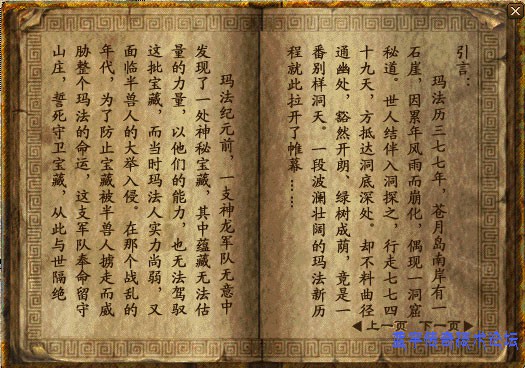 引言：
玛法历三七七年，苍月岛南岸有一
石崖，因累年风雨而崩化，偶现一洞窟
秘道。世人结伴入洞探之，行走七七四
十九天，方抵达洞底深处。却不料曲径
通幽处，豁然开朗、绿树成荫，竟是一
番别样洞天。一段波澜壮阔的玛法新历
程就此拉开了帷幕……
玛法纪元前，一支神龙军队无意中
发现了一处神秘宝藏，其中蕴藏无法估
量的力量，以他们的能力，也无法驾驭
这批宝藏，而当时玛法人实力尚弱，又
面临半兽人的大举入侵。在那个战乱的
年代，为了防止宝藏被半兽人掳走而威
胁整个玛法的命运，这支军队奉命留守
山庄，誓死守卫宝藏，从此与世隔绝
上一页 下一页
传奇技术论坛